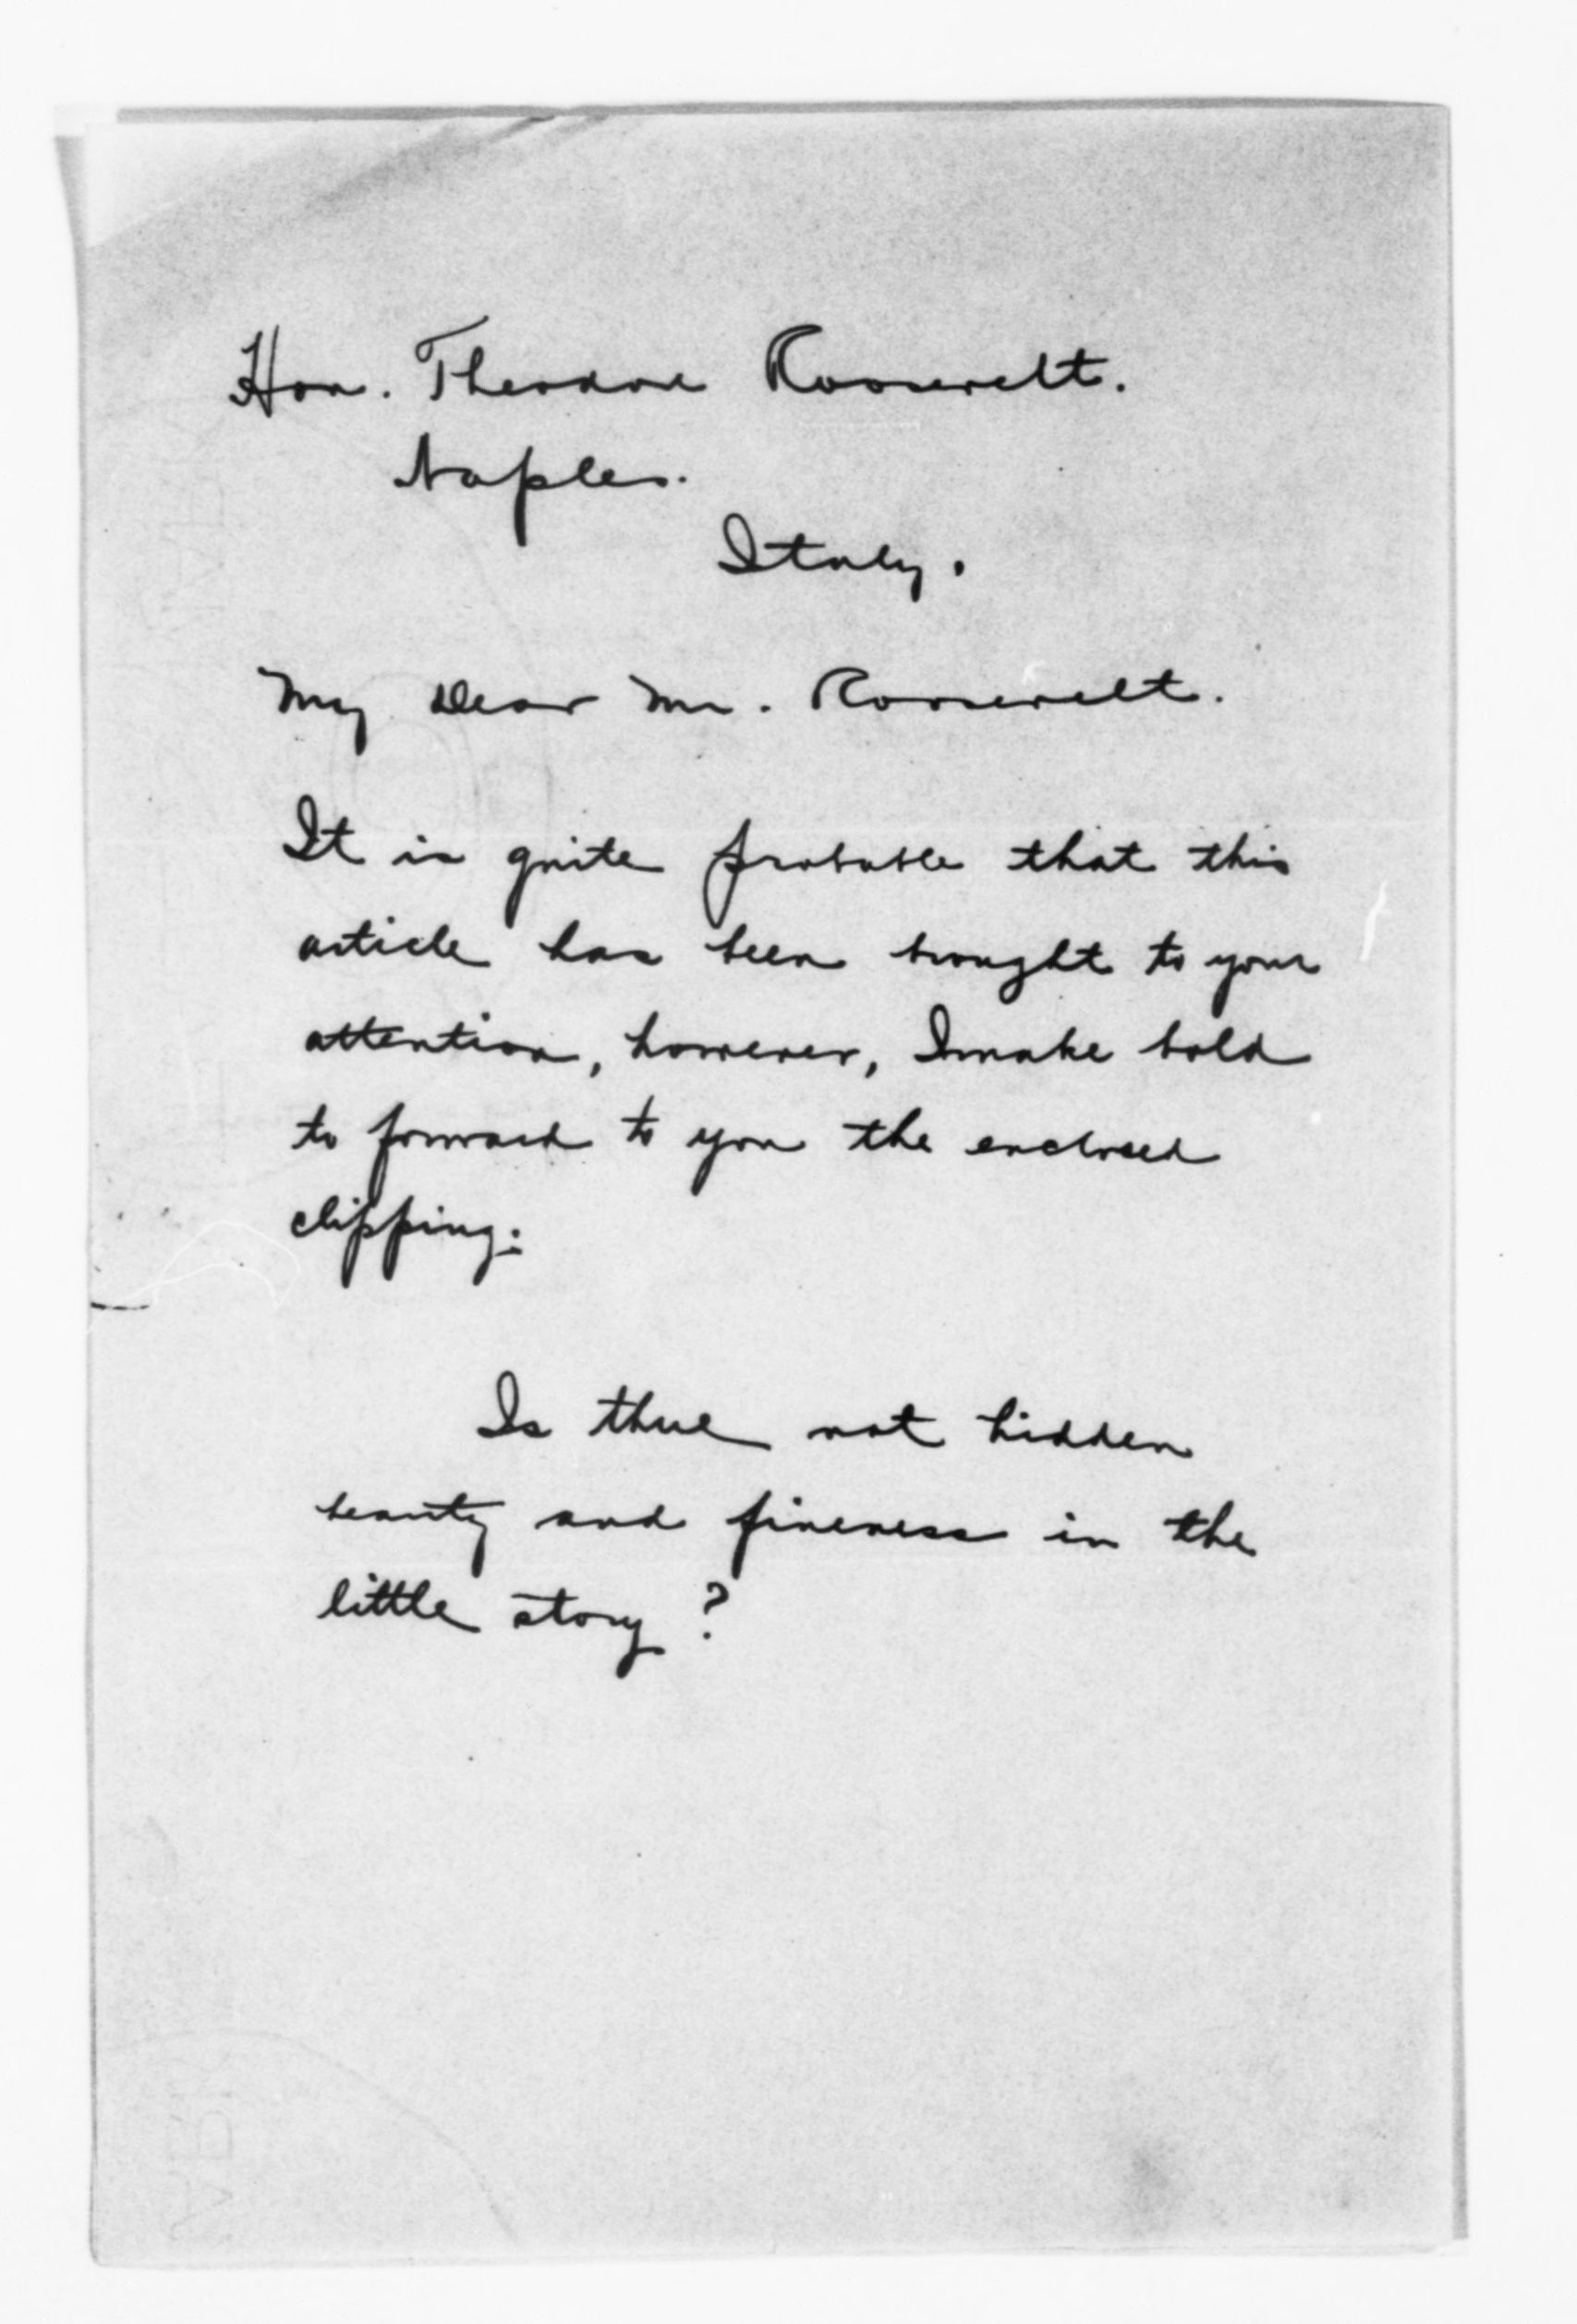 Hon. Theodore Roosevelt.
Naples.
Italy.
My Dear Mr. Roosevelt.
It is quite probable that this
article has been brought to your
attention, however, I make bold
to forward to you the enclosed
clipping:
Is there not hidden
beauty and fineness in the
little story?